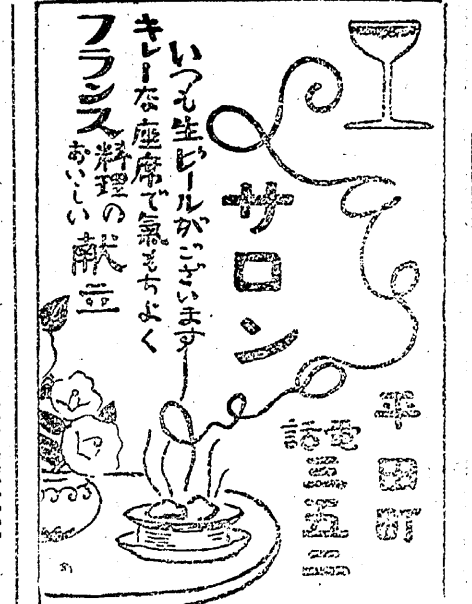 サロン
平田町
電話三五二
いつも生ビールがございます
キレーな座席で氣もちよく
フランス料理の
おいしい献立